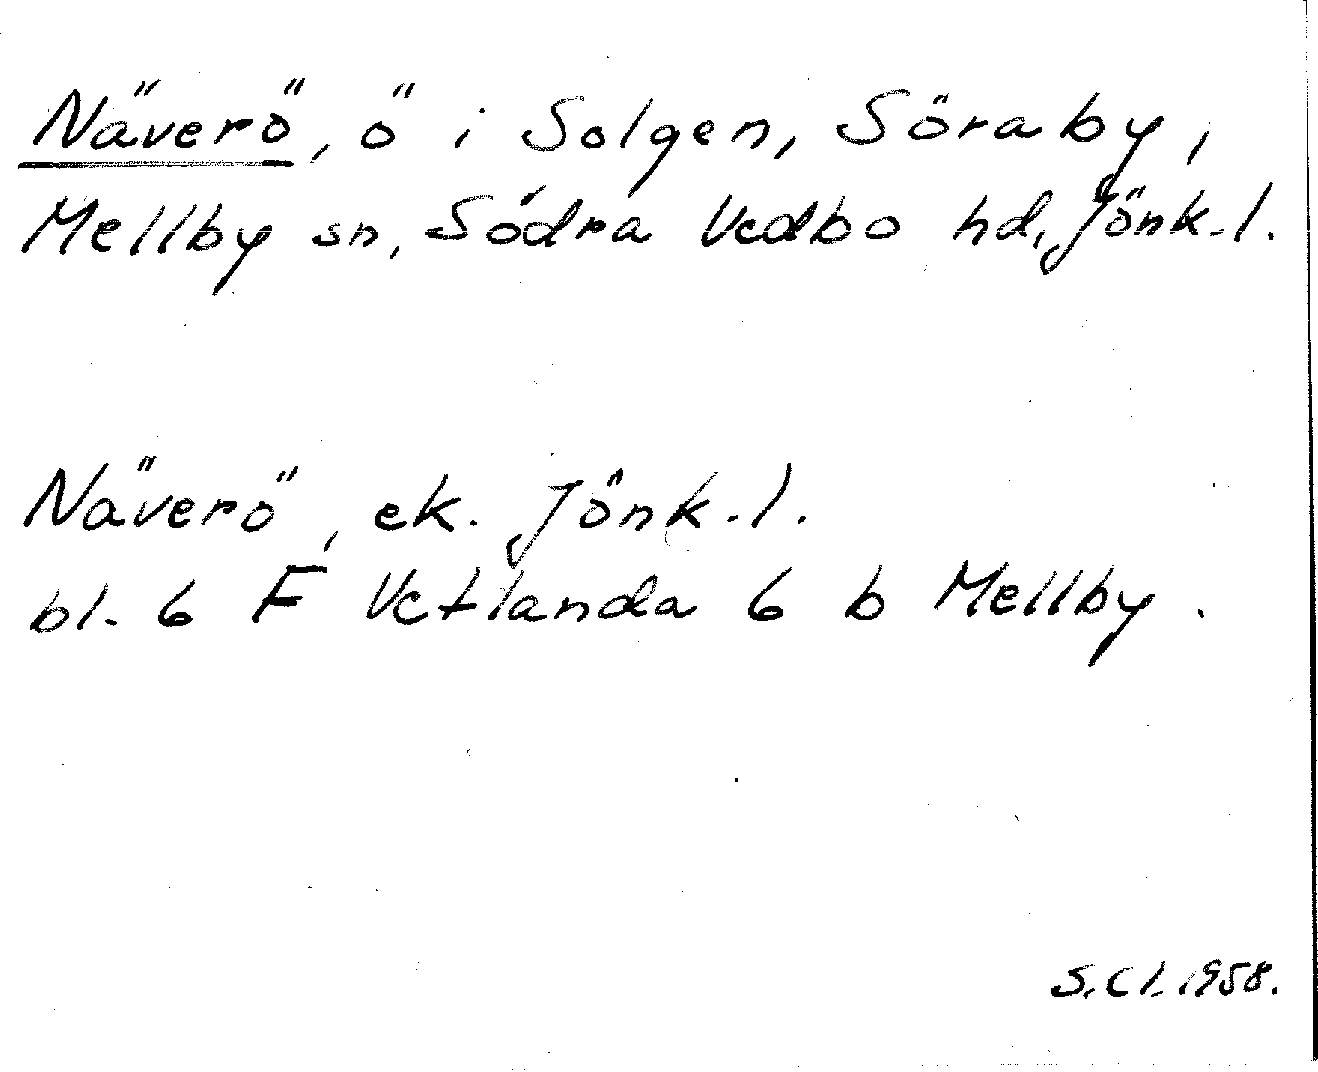 Näverö, ö i Solgen, Söraby,
Mellby sn, Södra Vedbo hd, Jönk. l.
Näverö, ek. Jönk. l.
bl. 6 F Vetlanda 6 b Mellby.
S. Cl. 1958.